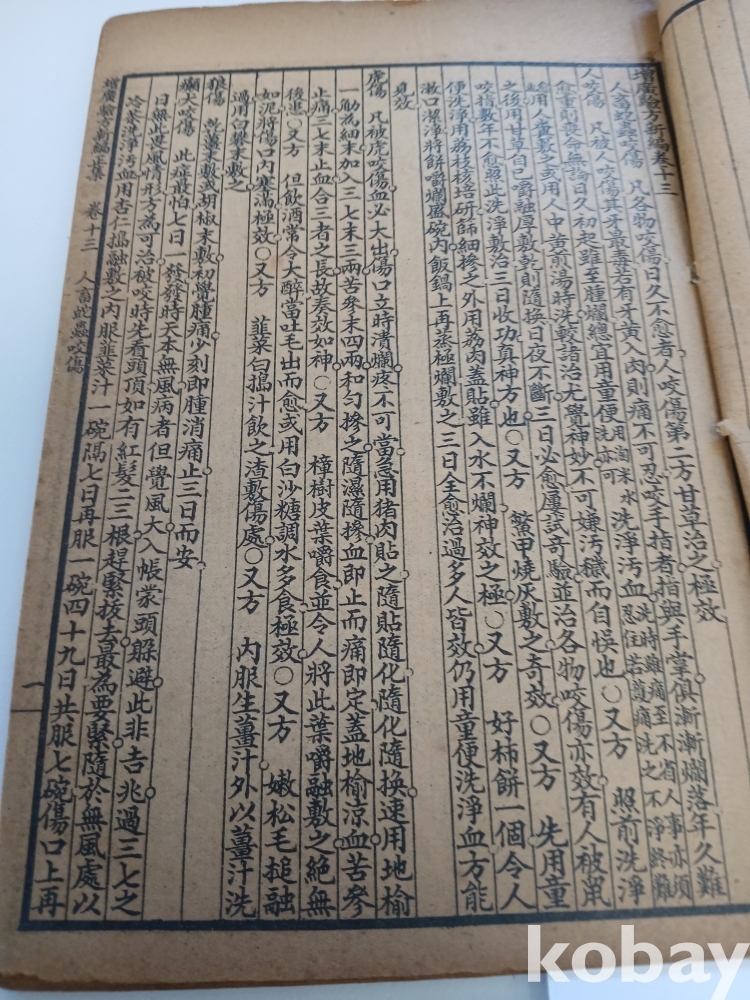 增廣驗方新編卷十三
人畜蛇蟲咬傷 凡各物咬傷日久不愈者人咬傷第二方甘草治之極效
人咬傷 凡被人咬傷其牙最毒若有牙黃入肉則痛不可忍咬手指者指與手掌俱漸漸爛落年久難
愈重則喪命無論日久初起雖至腫爛總宜用童便洗亦可用淘米水洗淨污血忍住若畏痛洗之不淨終難洗時雖痛至不省人事亦須
輸用人糞敷之或用人中黃煎湯時洗較諸治尤覺神妙不可嫌污穢而自悞也○又方 照前洗淨
之後用甘草自己嚼融厚敷乾則隨換日夜不斷三日必愈屢試奇驗並治各物咬傷亦效有人被鼠
咬指數年不愈照此洗淨敷治三日收功真神方也○又方 鱉甲燒灰敷之奇效○又方 先用童
便洗淨用荔枝核焙研篩細摻之外用荔肉蓋貼雖入水不爛神效之極○又方 好柿餅一個令人
漱口潔淨將餅嚼爛盛碗內飯鍋上再蒸極爛敷之三日全愈治過多人皆效仍用童便洗淨血方能
見效
虎傷 凡被虎咬傷血必大出傷口立時潰爛疼不可當急用猪肉貼之隨貼隨化隨化隨換速用地榆
一觔為細末加入三七末三兩苦參末四兩和勻摻之隨濕隨摻血即止而痛即定蓋地榆涼血苦參
止痛三七末止血合三者之長故奏效如神○又方 樟樹皮葉嚼食並令人將此葉嚼融敷之絕無
後患○又方 但飲酒常令大醉當吐毛出而愈或用白沙糖調水多食極效○又方 嫩松毛搥融
如泥將傷口內塞滿極效○又方 韮菜白搗汁飲之渣敷傷處○又方 內服生薑汁外以薑汁洗
過用白礬末敷之
狼傷 乾薑末敷或胡椒末敷初覺腫痛少刻即腫消痛止三日而安
瘋犬咬傷 此症最怕七日一發發時天本無風病者但覺風大入帳蒙頭躲避此非吉兆過三七之
日無此逆風情形方為可治被咬時先看頭頂如有紅髮二三根趕緊拔去最為要緊隨於無風處以
冷茶洗淨污血用杏仁搗融敷之內服韮菜汁一碗隔七日再服一碗四十九日共服七碗傷口上再
增廣驗方新編正集 卷十三 人畜蛇蟲咬傷 一
kobay